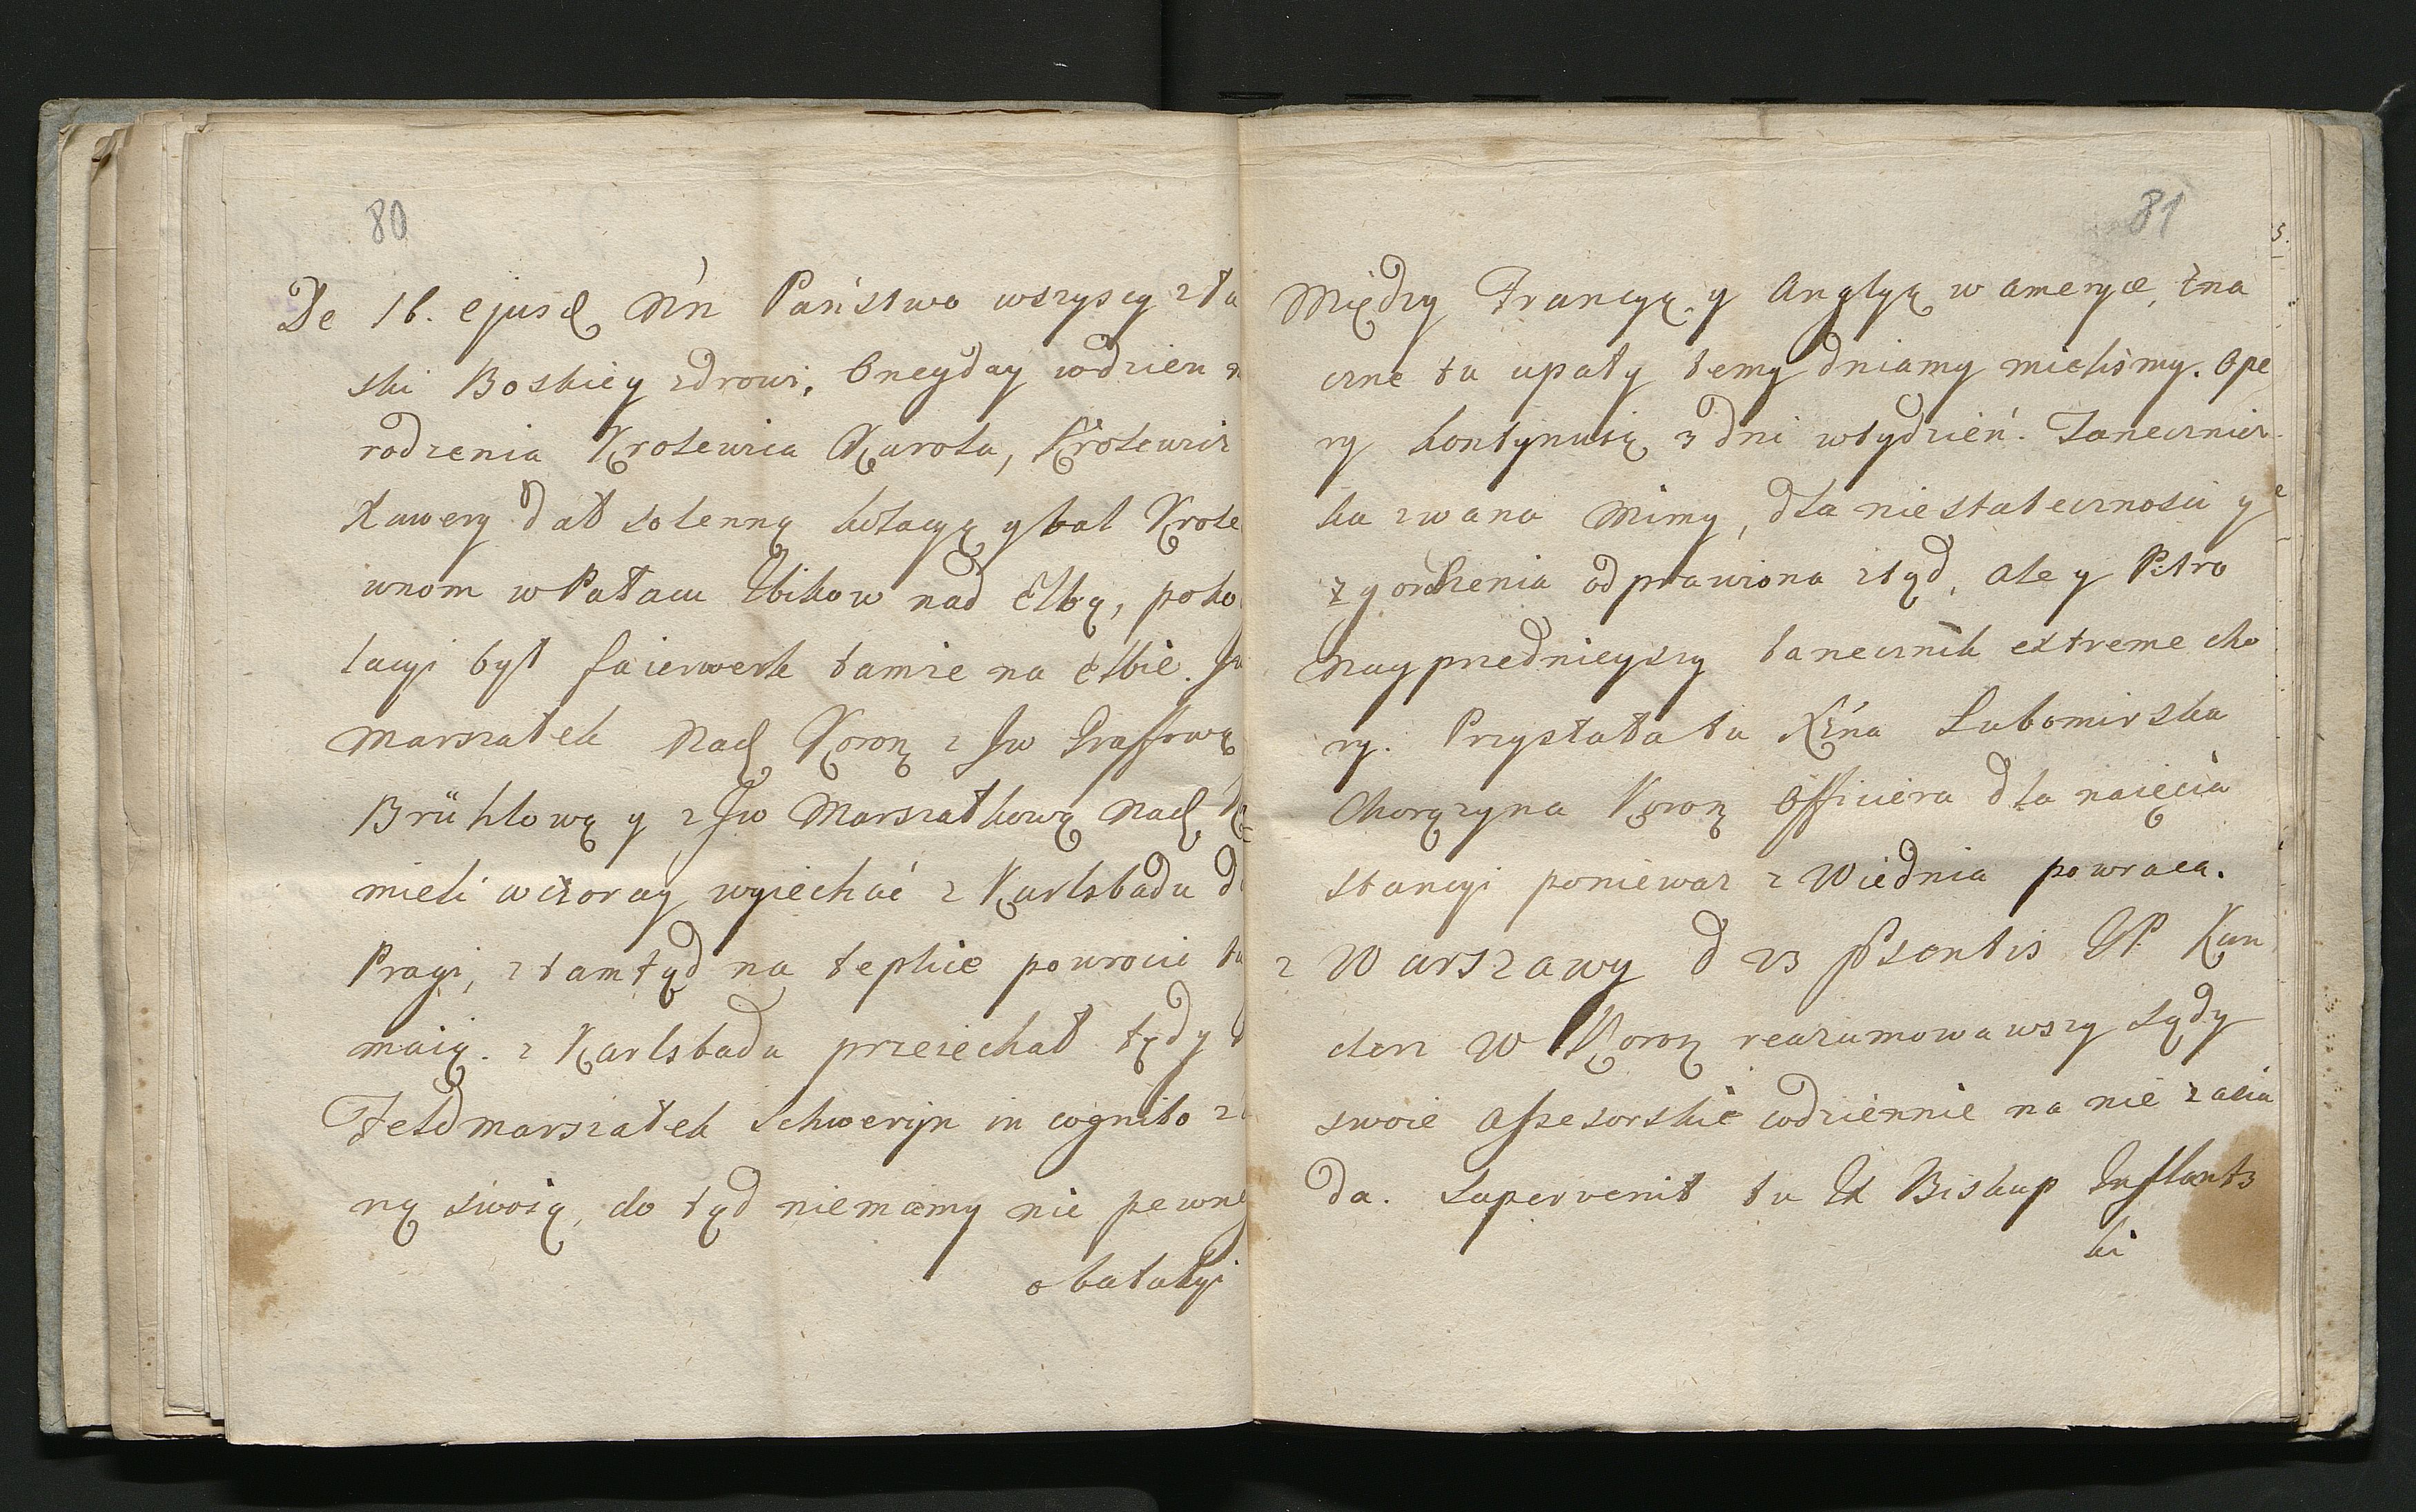 80
De 16. ejusd Nn Państwo wszyscy z ła
ski Boskiey zdrowi. Oneyday wdzien
rodzenia Krolewica Karola, Krolewic
Xawery dał solenną kolacyą y bal Krole
wnom w Pałacu Ibikow nad Elbą, poko
lacyi był faierwerk tamze na Elbie. Jw
Marszałek Nad Koron z Jw Graffową
Brühlową y z Jw Marszałkową Nad
mieli wczoray wyiechać z Karlsbadu d
Pragi, ztamtąd na teplice powrocic tu
maią. z Karlsbadu przeiechał tędy
Feldmarszałek Schweryn in cognito z
ną swoią, do tąd niemamy nic pewne
o batalyi
81
Między Francyą y Anglyą w Ameryce, zna
czne tu upały temy dniamy mielismy. Ope
ry kontynuią 3 dni wtydzień. Tanecznicz
ka zwana Mimy, dla niestateczności y
zgorszenia odprawiona ztąd, Ale y Pitro
Nayprzednieyszy tanecznik extreme cho
ry. Przysłała tu Xżna Lubomirska
Chorązyna Koron Officiera dla naięcia
stancyi poniewaz z Wiednia powraca.
z Warszawy d 23 psentis JP Kan
clerz W Koron reazumowawszy sądy
swoie Assesorskie codziennie na nie zasia
da. Supervenit tu JX Biskup Inflants
ki